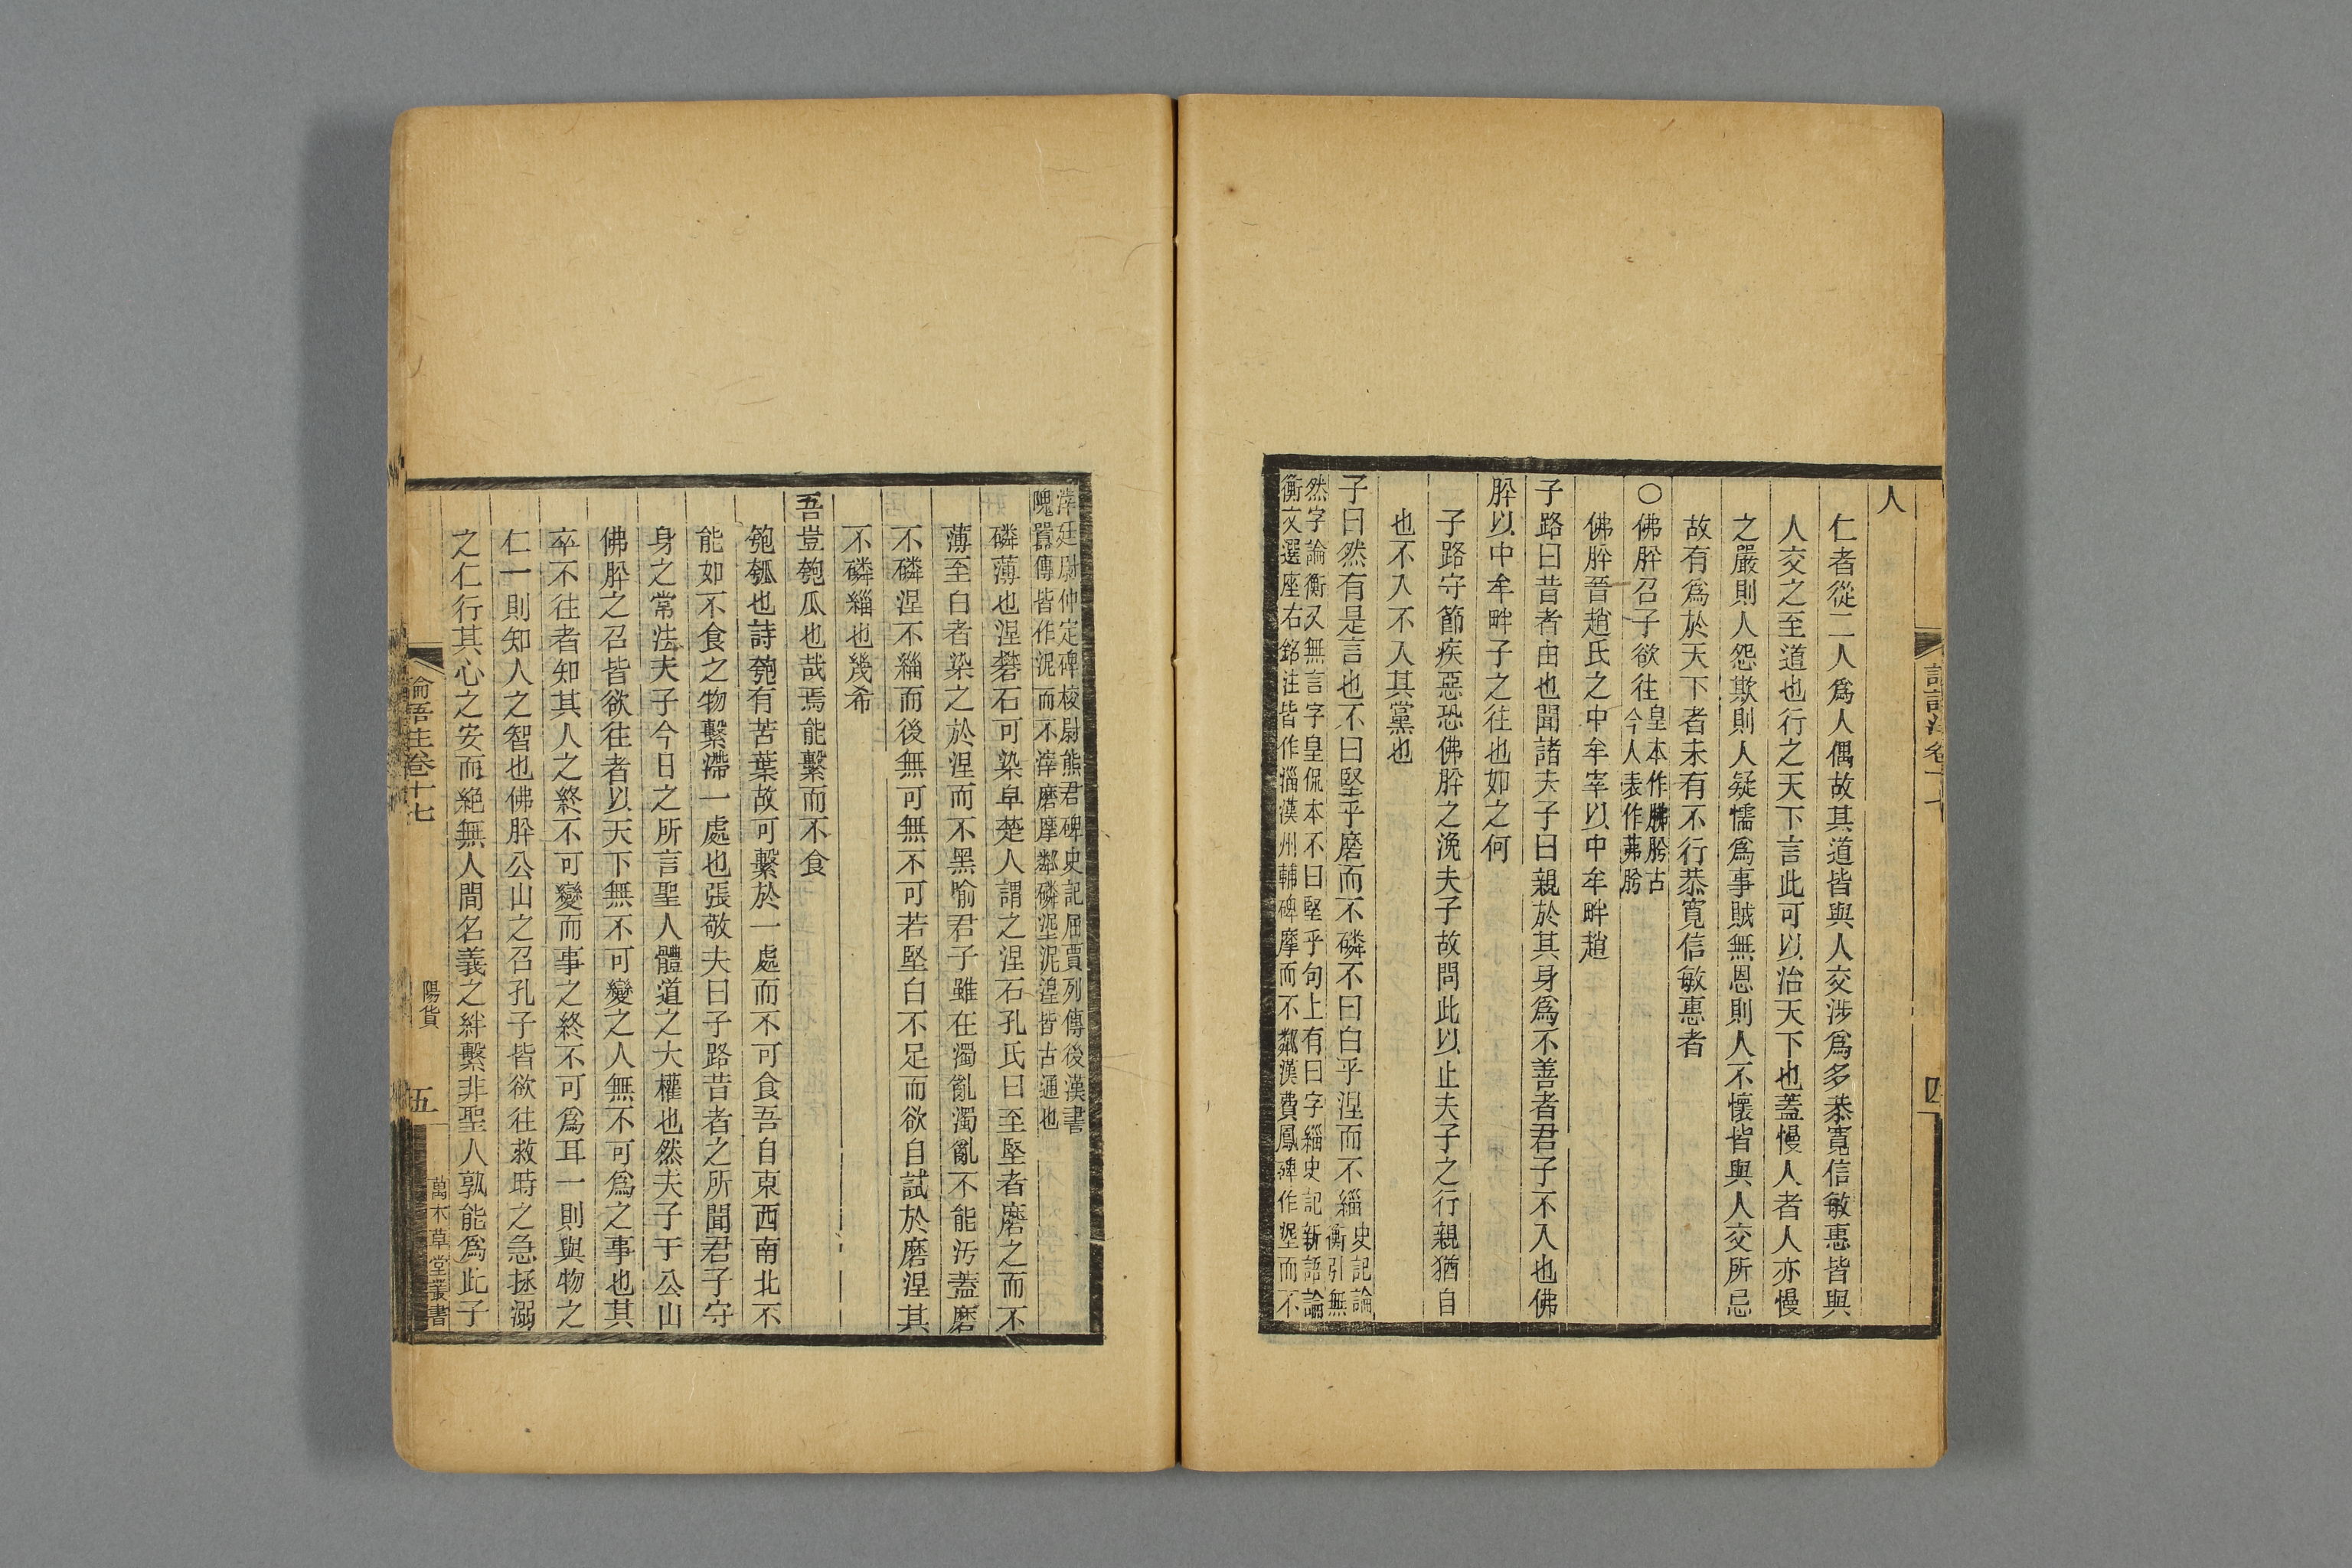 人
仁者從二人爲人偶故其道皆與人交涉爲多恭寬信敏惠皆與
人交之至道也行之天下言此可以治天下也蓋慢人者人亦慢
之嚴則人怨欺則人疑懦爲事賊無恩則人不懷皆與人交所忌
故有爲於天下者未有不行恭寬信敏惠者
○佛肸召子欲往皇本作胇肹古
今人表作茀肹
佛肸晉趙氏之中牟宰以中牟畔趙
子路曰昔者由也聞諸夫子曰親於其身爲不善者君子不入也佛
肸以中牟畔子之往也如之何
子路守節疾惡恐佛肸之浼夫子故問此以止夫子之行親猶自
也不入不入其黨也
子曰然有是言也不曰堅乎磨而不磷不曰白乎涅而不緇史記論
衡引無
然字論衡又無言字皇侃本不曰堅乎句上有曰字緇史記新語論
衡文選座右銘注皆作淄漢州輔碑摩而不粼漢費鳳碑作埿而不
滓廷尉仲定碑棱尉熊君碑史記屈賈列傳後漢書
隗囂傳皆作泥而不滓磨摩粼磷埿泥湼皆古通也
磷薄也涅礬石可染皁楚人謂之涅石孔氏曰至堅者磨之而不
薄至白者染之於涅而不黑喻君子雖在濁亂濁亂不能汚蓋磨
不磷涅不緇而後無可無不可若堅白不足而欲自試於磨涅其
不磷緇也幾希
吾豈匏瓜也哉焉能繫而不食
匏瓠也詩匏有苦葉故可繫於一處而不可食吾自東西南北不
能如不食之物繫滯一處也張敬夫曰子路昔者之所聞君子守
身之常法夫子今日之所言聖人體道之大權也然夫子于公山
佛肸之召皆欲往者以天下無不可變之人無不可爲之事也其
卒不往者知其人之終不可變而事之終不可爲耳一則與物之
仁一則知人之智也佛肸公山之召孔子皆欲往救時之急拯溺
之仁行其心之安而絕無人間名義之絆繫非聖人孰能爲此子
論語注卷十七
陽貨
五
萬木草堂叢書